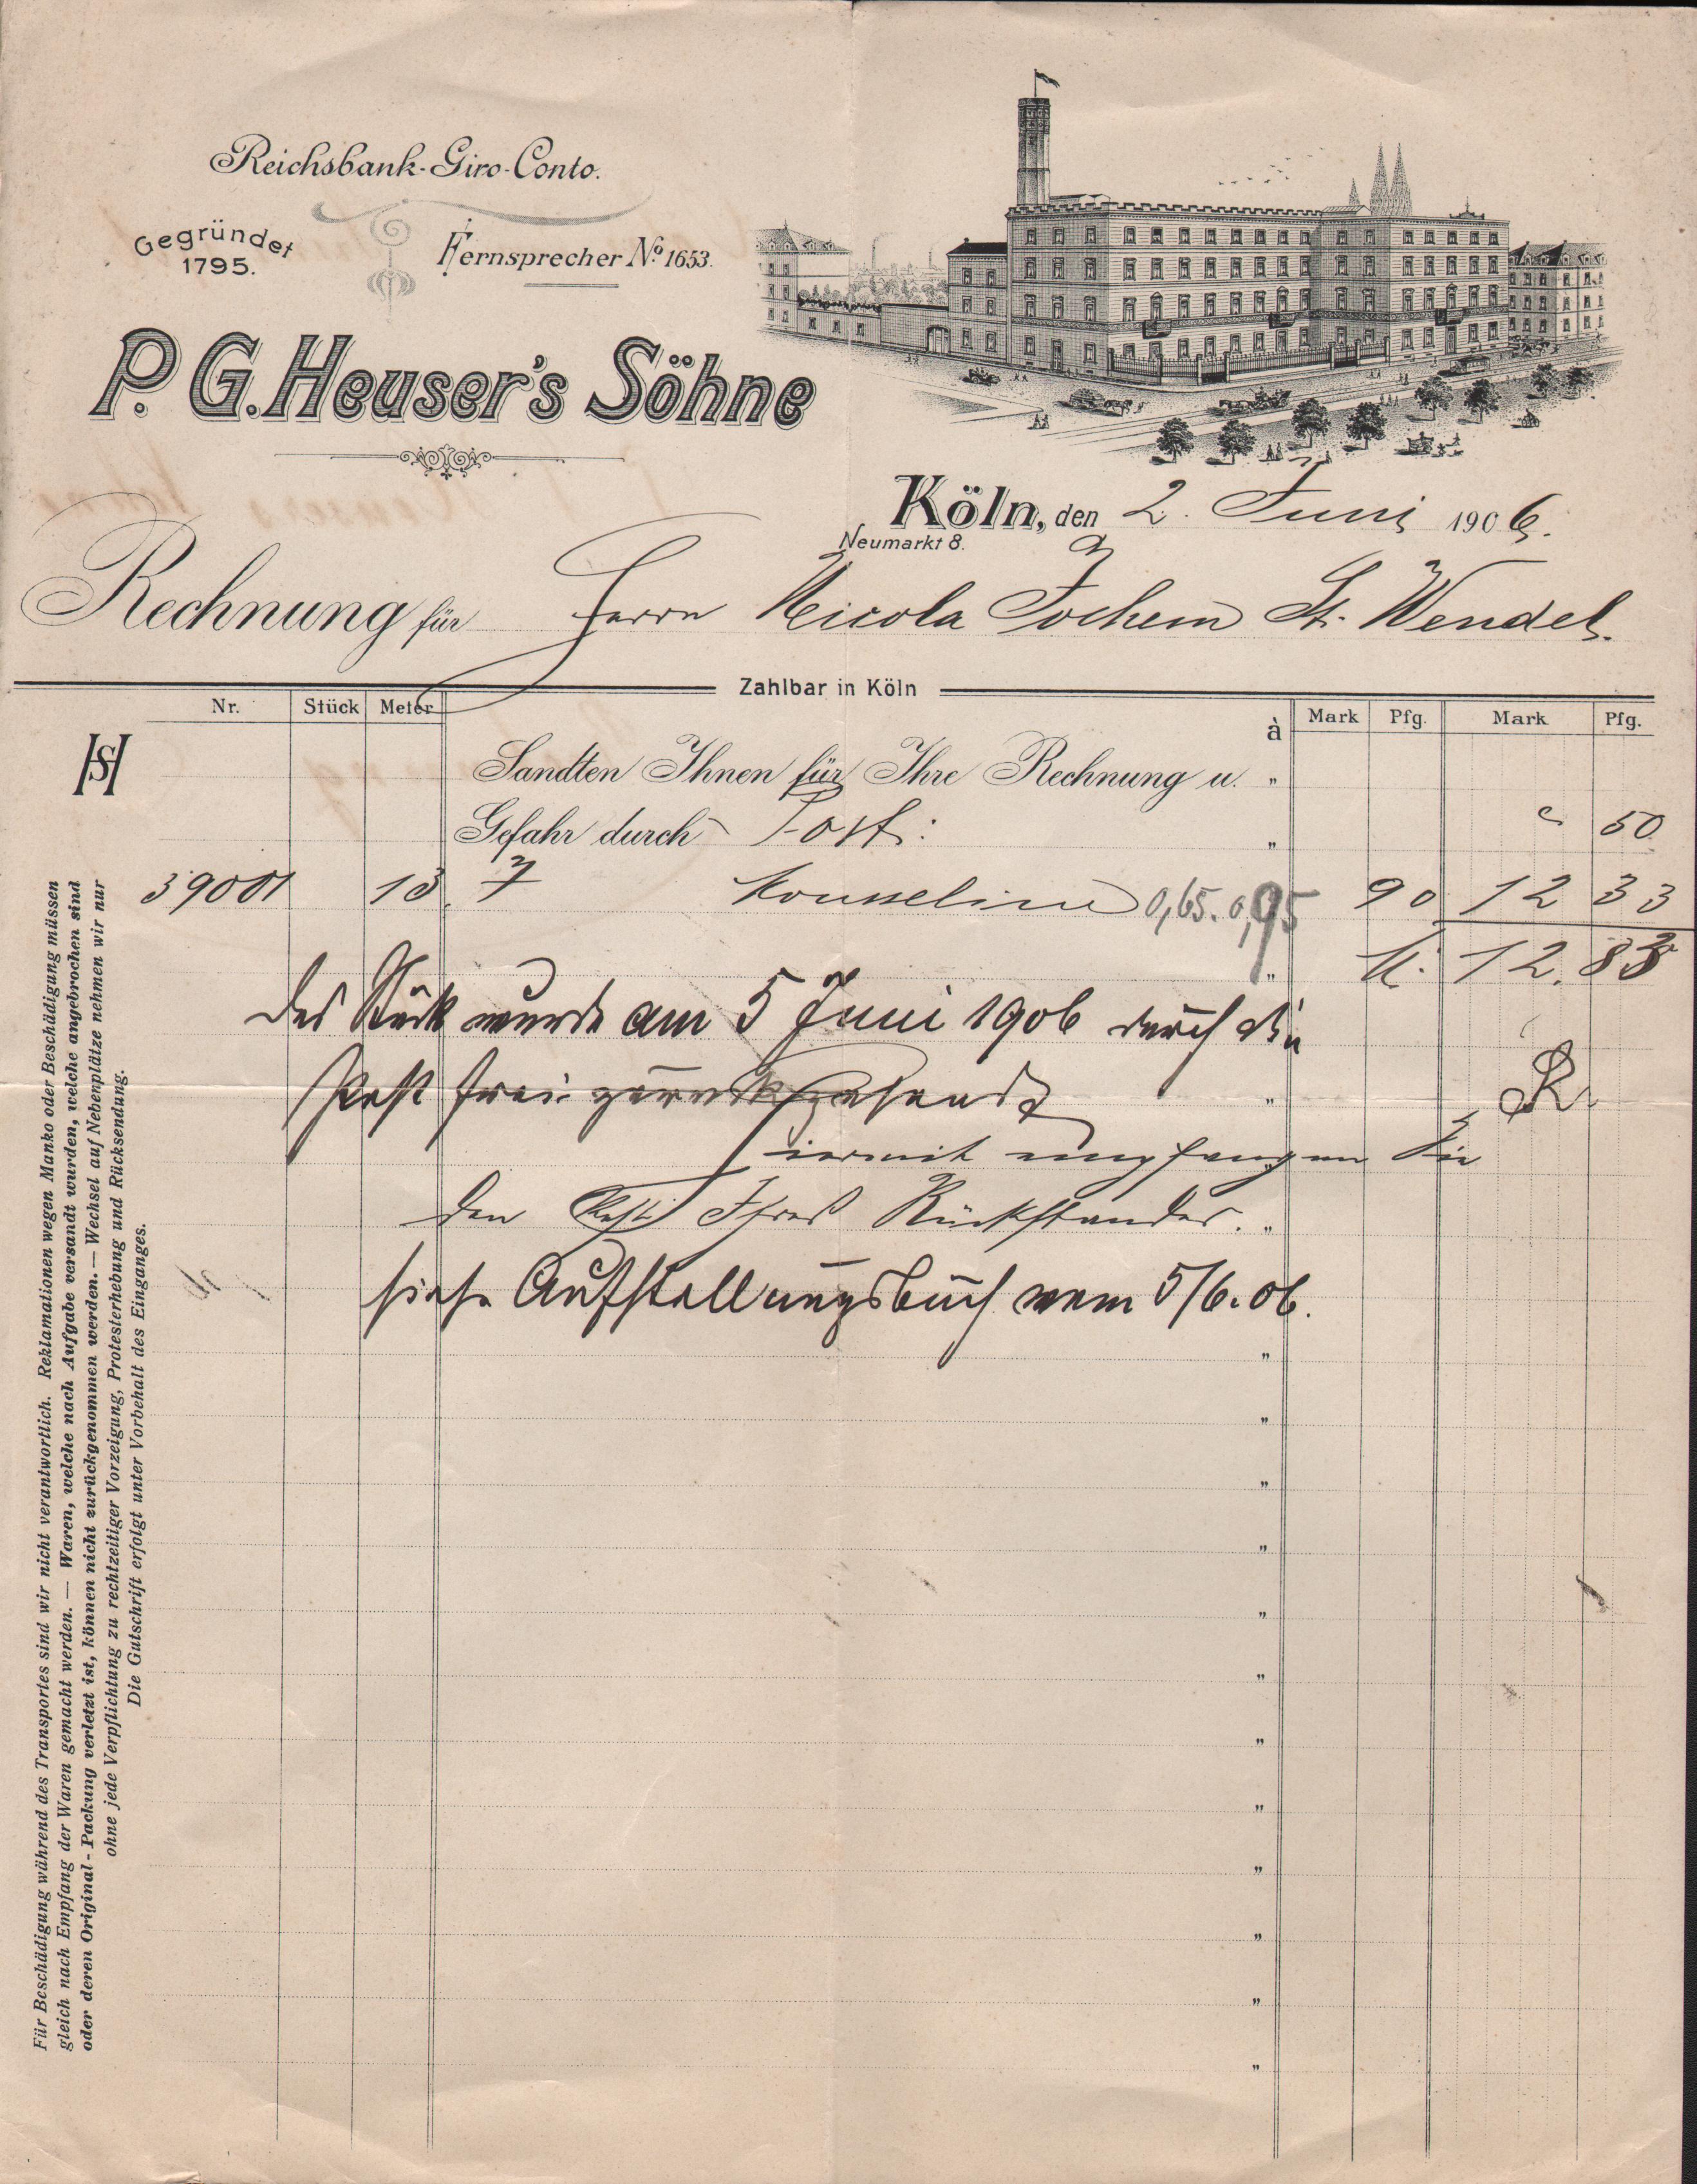 Reichsbank-Giro-Conto.
Gegründet
1795.
Fernsprecher No. 1653.
P. G. Heuser's Söhne
Köln, den 2. Juni 1906.
Neumarkt 8.
Rechnung für Herrn Nicola Jochem St. Wendel.
Zahlbar in Köln
Nr. Stück Meter à Mark Pfg. Mark Pfg.
HS
Sandten Ihnen für Ihre Rechnung u. "
Gefahr durch Post: " 50
39001 13 7 Mousseline 0,65. 0,95 90 12 33
" M. 12. 83
Das Stück wurde am 5 Juni 1906 durch die
Post frei zurückgesandt "
Hiermit empfangen Sie
den Rest Ihres Rückstandes. "
siehe Aufstellungsbuch vom 5/6. 06.
"
"
"
"
"
"
"
"
"
"
"
"
Für Beschädigung während des Transportes sind wir nicht verantwortlich. Reklamationen wegen Manko oder Beschädigung müssen
gleich nach Empfang der Waren gemacht werden. — Waren, welche nach Aufgabe versandt wurden, welche angebrochen sind
oder deren Original-Packung verletzt ist, können nicht zurückgenommen werden. — Wechsel auf Nebenplätze nehmen wir nur
ohne jede Verpflichtung zu rechtzeitiger Vorzeigung, Protesterhebung und Rücksendung.
Die Gutschrift erfolgt unter Vorbehalt des Einganges.